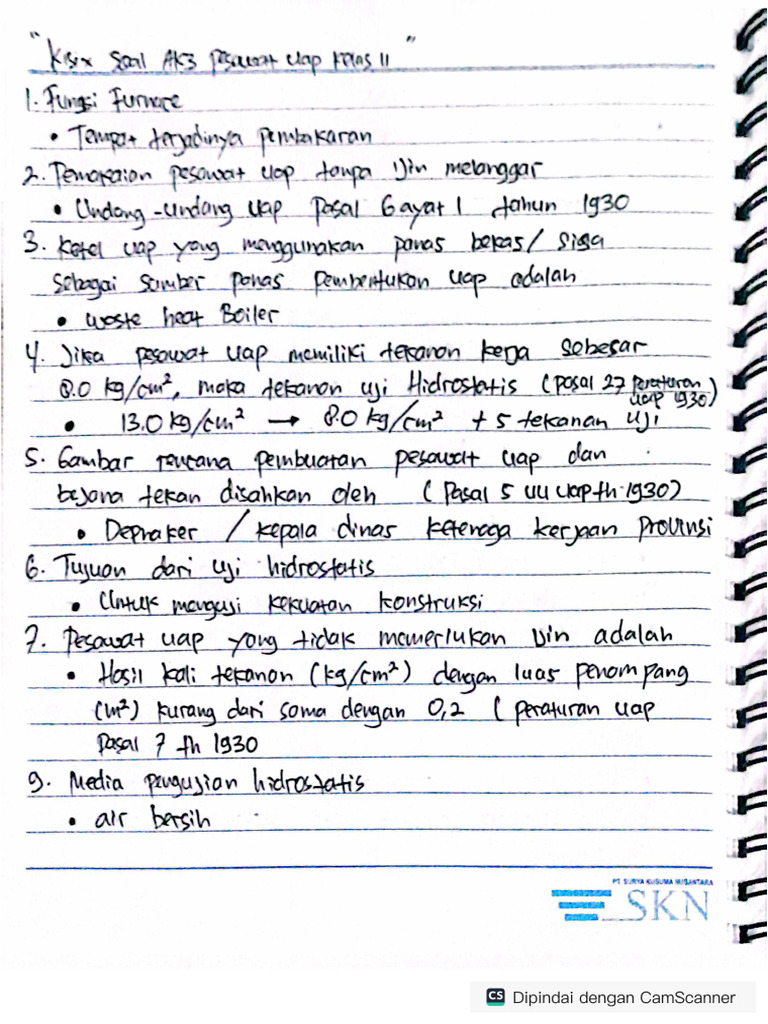 "Kisi× Soal AK3 pesawat uap kelas II"
1. Fungsi Furnace
• Tempat terjadinya pembakaran
2. Pemakaian pesawat uap tanpa Ijin melanggar
• Undang-undang uap Pasal 6 ayat 1 tahun 1930
3. Ketel uap yang menggunakan panas bekas/ sisa
sebagai sumber panas pembentukan uap adalah
• waste heat Boiler
4. Jika pesawat uap memiliki tekanan kerja sebesar
8.0 kg/cm², maka tekanan uji Hidrostatis (pasal 27 Peraturan uap 1930)
• 13.0 kg/cm² → 8.0 kg/cm² + 5 tekanan uji
5. Gambar rencana pembuatan pesawat uap dan
bejana tekan disahkan oleh (Pasal 5 uu uap th.1930)
• Depnaker / kepala dinas ketenaga kerjaan Provinsi
6. Tujuan dari uji hidrostatis
• Untuk menguji kekuatan konstruksi
7. Pesawat uap yang tidak memerlukan Ijin adalah
• Hasil kali tekanan (kg/cm²) dengan luas penampang
(m²) kurang dari sama dengan 0,2 (peraturan uap
Pasal 7 th 1930
9. Media pengujian hidrostatis
• air bersih
PT SURYA KUSUMA NUSANTARA
SKN
CS Dipindai dengan CamScanner